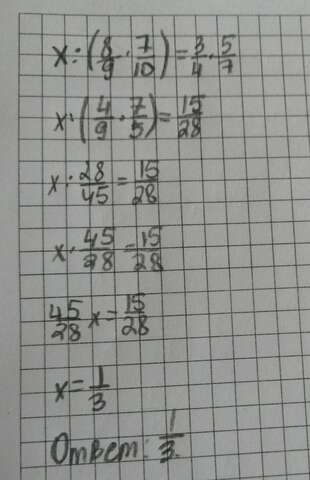 x:(8/9·7/10)=3/4·5/7
x:(4/9·7/5)=15/28
x:28/45=15/28
x·45/28=15/28
45/28x=15/28
x=1/3
Ответ: 1/3